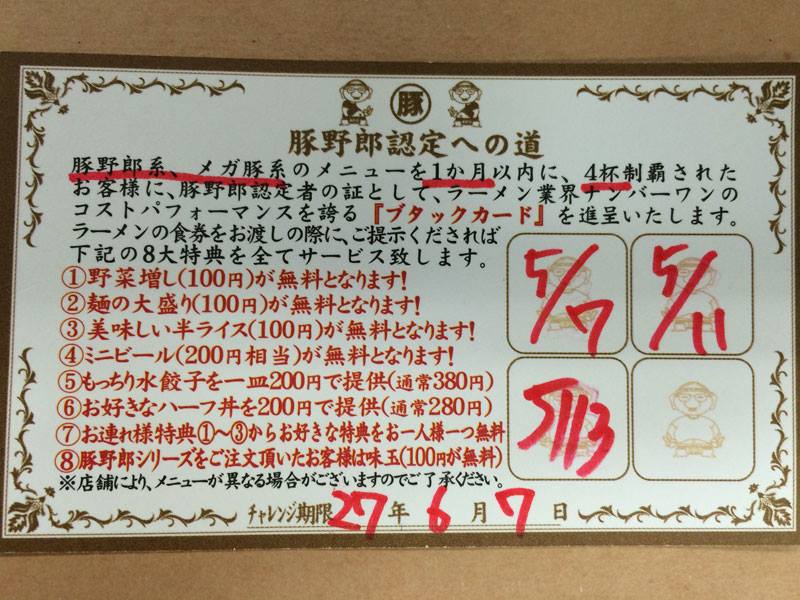 豚
豚野郎認定への道
豚野郎系、メガ豚系のメニューを1か月以内に、4杯制覇された
お客様に、豚野郎認定者の証として、ラーメン業界ナンバーワンの
コストパフォーマンスを誇る『ブタックカード』を進呈いたします。
ラーメンの食券をお渡しの際に、ご提示くだされば
下記の8大特典を全てサービス致します。
①野菜増し(100円)が無料となります!
②麺の大盛り(100円)が無料となります!
③美味しい半ライス(100円)が無料となります!
④ミニビール(200円相当)が無料となります!
⑤もっちり水餃子を一皿200円で提供(通常380円)
⑥お好きなハーフ丼を200円で提供(通常280円)
⑦お連れ様特典①〜③からお好きな特典をお一人様一つ無料
⑧豚野郎シリーズをご注文頂いたお客様は味玉(100円が無料)
※店舗により、メニューが異なる場合がございますのでご了承ください。
5/7
5/11
5/13
チャレンジ期限 27年 6月 7日